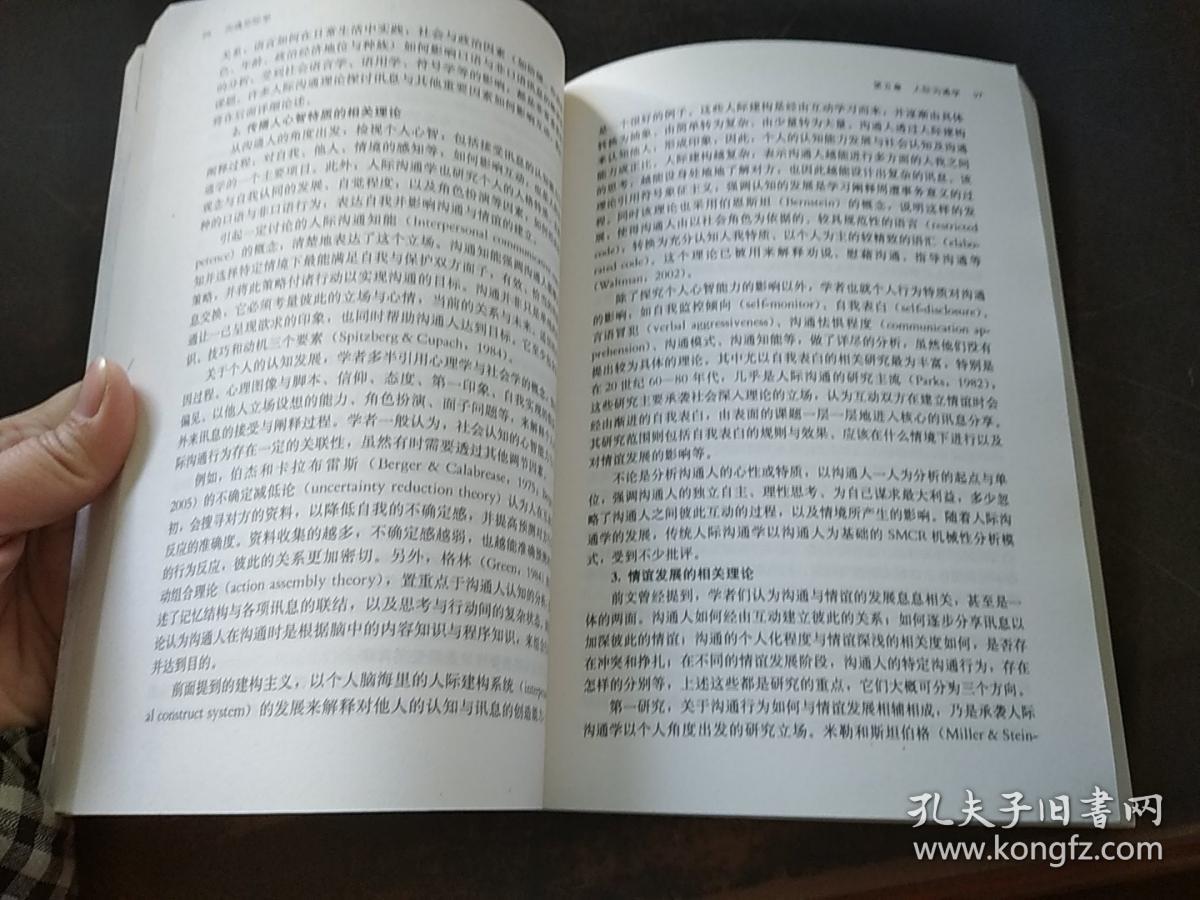 关系；语言如何在日常生活中实践；社会与政治因素
色、年龄、政治经济地位与种族）如何影响口语与非口语讯息
的分析、受到社会语言学、语用学、符号学等的影响，都是
课题，许多人际沟通理论探讨讯息与其他重要因素如何影响互
将在后面详细论述。
2. 传播人心智特质的相关理论
从沟通人的角度出发，检视个人心智，包括接受讯息的认知
阐释过程，对自我、他人、情境的感知等，如何影响互动，也是
通学的一个主要项目。此外，人际沟通学也研究个人的人格特质
观念与自我认同的发展、自觉程度，以及角色扮演等因素，如何
种的口语与非口语行为，表达自我并影响沟通与情谊的建立。
引起一定讨论的人际沟通知能（Interpersonal communication
perence）的概念，清楚地表达了这个立场。沟通知能强调沟通人
知并选择特定情境下最能满足自我与保护双方面子，有效、恰当
策略，并将此策略付诸行动以实现沟通的目标。沟通并非只是
息交换，它必须考量彼此的立场与心情，当前的关系与未来，适
通让一己呈现欲求的印象，也同时帮助沟通人达到目标。它至少
识、技巧和动机三个要素（Spitzberg & Cupach, 1984）。
关于个人的认知发展，学者多半引用心理学与社会学的概念
因过程、心理图像与脚本、信仰、态度、第一印象、自我实现的
偏见，以他人立场设想的能力、角色扮演、面子问题等，来解释个人
外来讯息的接受与阐释过程。学者一般认为，社会认知的心智能力
际沟通行为存在一定的关联性，虽然有时需要透过其他调节因素。
例如，伯杰和卡拉布雷斯（Berger & Calabrese, 1975;
2005）的不确定减低论（uncertainty reduction theory）认为人在
初，会搜寻对方的资料，以降低自我的不确定感，并提高预测对方
反应的准确度。资料收集的越多，不确定感越弱，也越能准确预测
的行为反应，彼此的关系更加密切。另外，格林（Green, 1984）
动组合理论（action assembly theory），置重点于沟通人认知的分析
述了记忆结构与各项讯息的联结，以及思考与行动间的复杂状态，
论认为沟通人在沟通时是根据脑中的内容知识与程序知识，来组合
并达到目的。
前面提到的建构主义，以个人脑海里的人际建构系统（interperson-
al construct system）的发展来解释对他人的认知与讯息的创造能力
第五章 人际沟通学 97
是一个很好的例子，这些人际建构是经由互动学习而来，并逐渐由具体
转换为抽象，由简单转为复杂，由少量转为大量，沟通人透过人际建构
来认知他人，形成印象；因此，个人的认知能力发展与社会认知及沟通
能力成正比，人际建构越复杂，表示沟通人越能进行多方面的人我之间
的思考，越能设身处地地了解对方，也因此越能设计出复杂的讯息。该
理论引用符号象征主义，强调认知的发展是学习阐释周遭事务意义的过
程，同时该理论也采用伯恩斯坦（Bernstein）的概念，说明这样的发
展，使得沟通人由以社会角色为依据的、较具规范性的语言（restricted
code），转换为充分认知人我特质、以个人为主的较精致的语汇（elabo-
rated code）。这个理论已被用来解释劝说、慰藉沟通、指导沟通等
（Waltman, 2002）。
除了探究个人心智能力的影响以外，学者也就个人行为特质对沟通
的影响，如自我监控倾向（self-monitor）、自我表白（self-disclosure）、
言语冒犯（verbal aggressiveness）、沟通怯惧程度（communication ap-
prehension）、沟通模式、沟通知能等，做了详尽的分析，虽然他们没有
提出较为具体的理论。其中尤以自我表白的相关研究最为丰富，特别是
在 20 世纪 60—80 年代，几乎是人际沟通的研究主流（Parks, 1982），
这些研究主要承袭社会深入理论的立场，认为互动双方在建立情谊时会
经由渐进的自我表白，由表面的课题一层一层地进入核心的讯息分享。
其研究范围则包括自我表白的规则与效果、应该在什么情境下进行以及
对情谊发展的影响等。
不论是分析沟通人的心性或特质，以沟通人一人为分析的起点与单
位，强调沟通人的独立自主、理性思考、为自己谋求最大利益，多少忽
略了沟通人之间彼此互动的过程，以及情境所产生的影响。随着人际沟
通学的发展，传统人际沟通学以沟通人为基础的 SMCR 机械性分析模
式，受到不少批评。
3. 情谊发展的相关理论
前文曾经提到，学者们认为沟通与情谊的发展息息相关，甚至是一
体的两面。沟通人如何经由互动建立彼此的关系；如何逐步分享讯息以
加深彼此的情谊；沟通的个人化程度与情谊深浅的相关度如何，是否存
在冲突和挣扎；在不同的情谊发展阶段，沟通人的特定沟通行为，存在
怎样的分别等，上述这些都是研究的重点，它们大概可分为三个方向。
第一研究，关于沟通行为如何与情谊发展相辅相成，乃是承袭人际
沟通学以个人角度出发的研究立场。米勒和斯坦伯格（Miller & Stein-
孔夫子旧书网
www.kongfz.com